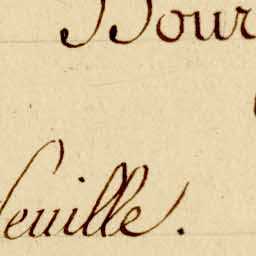 Bour
feuille.